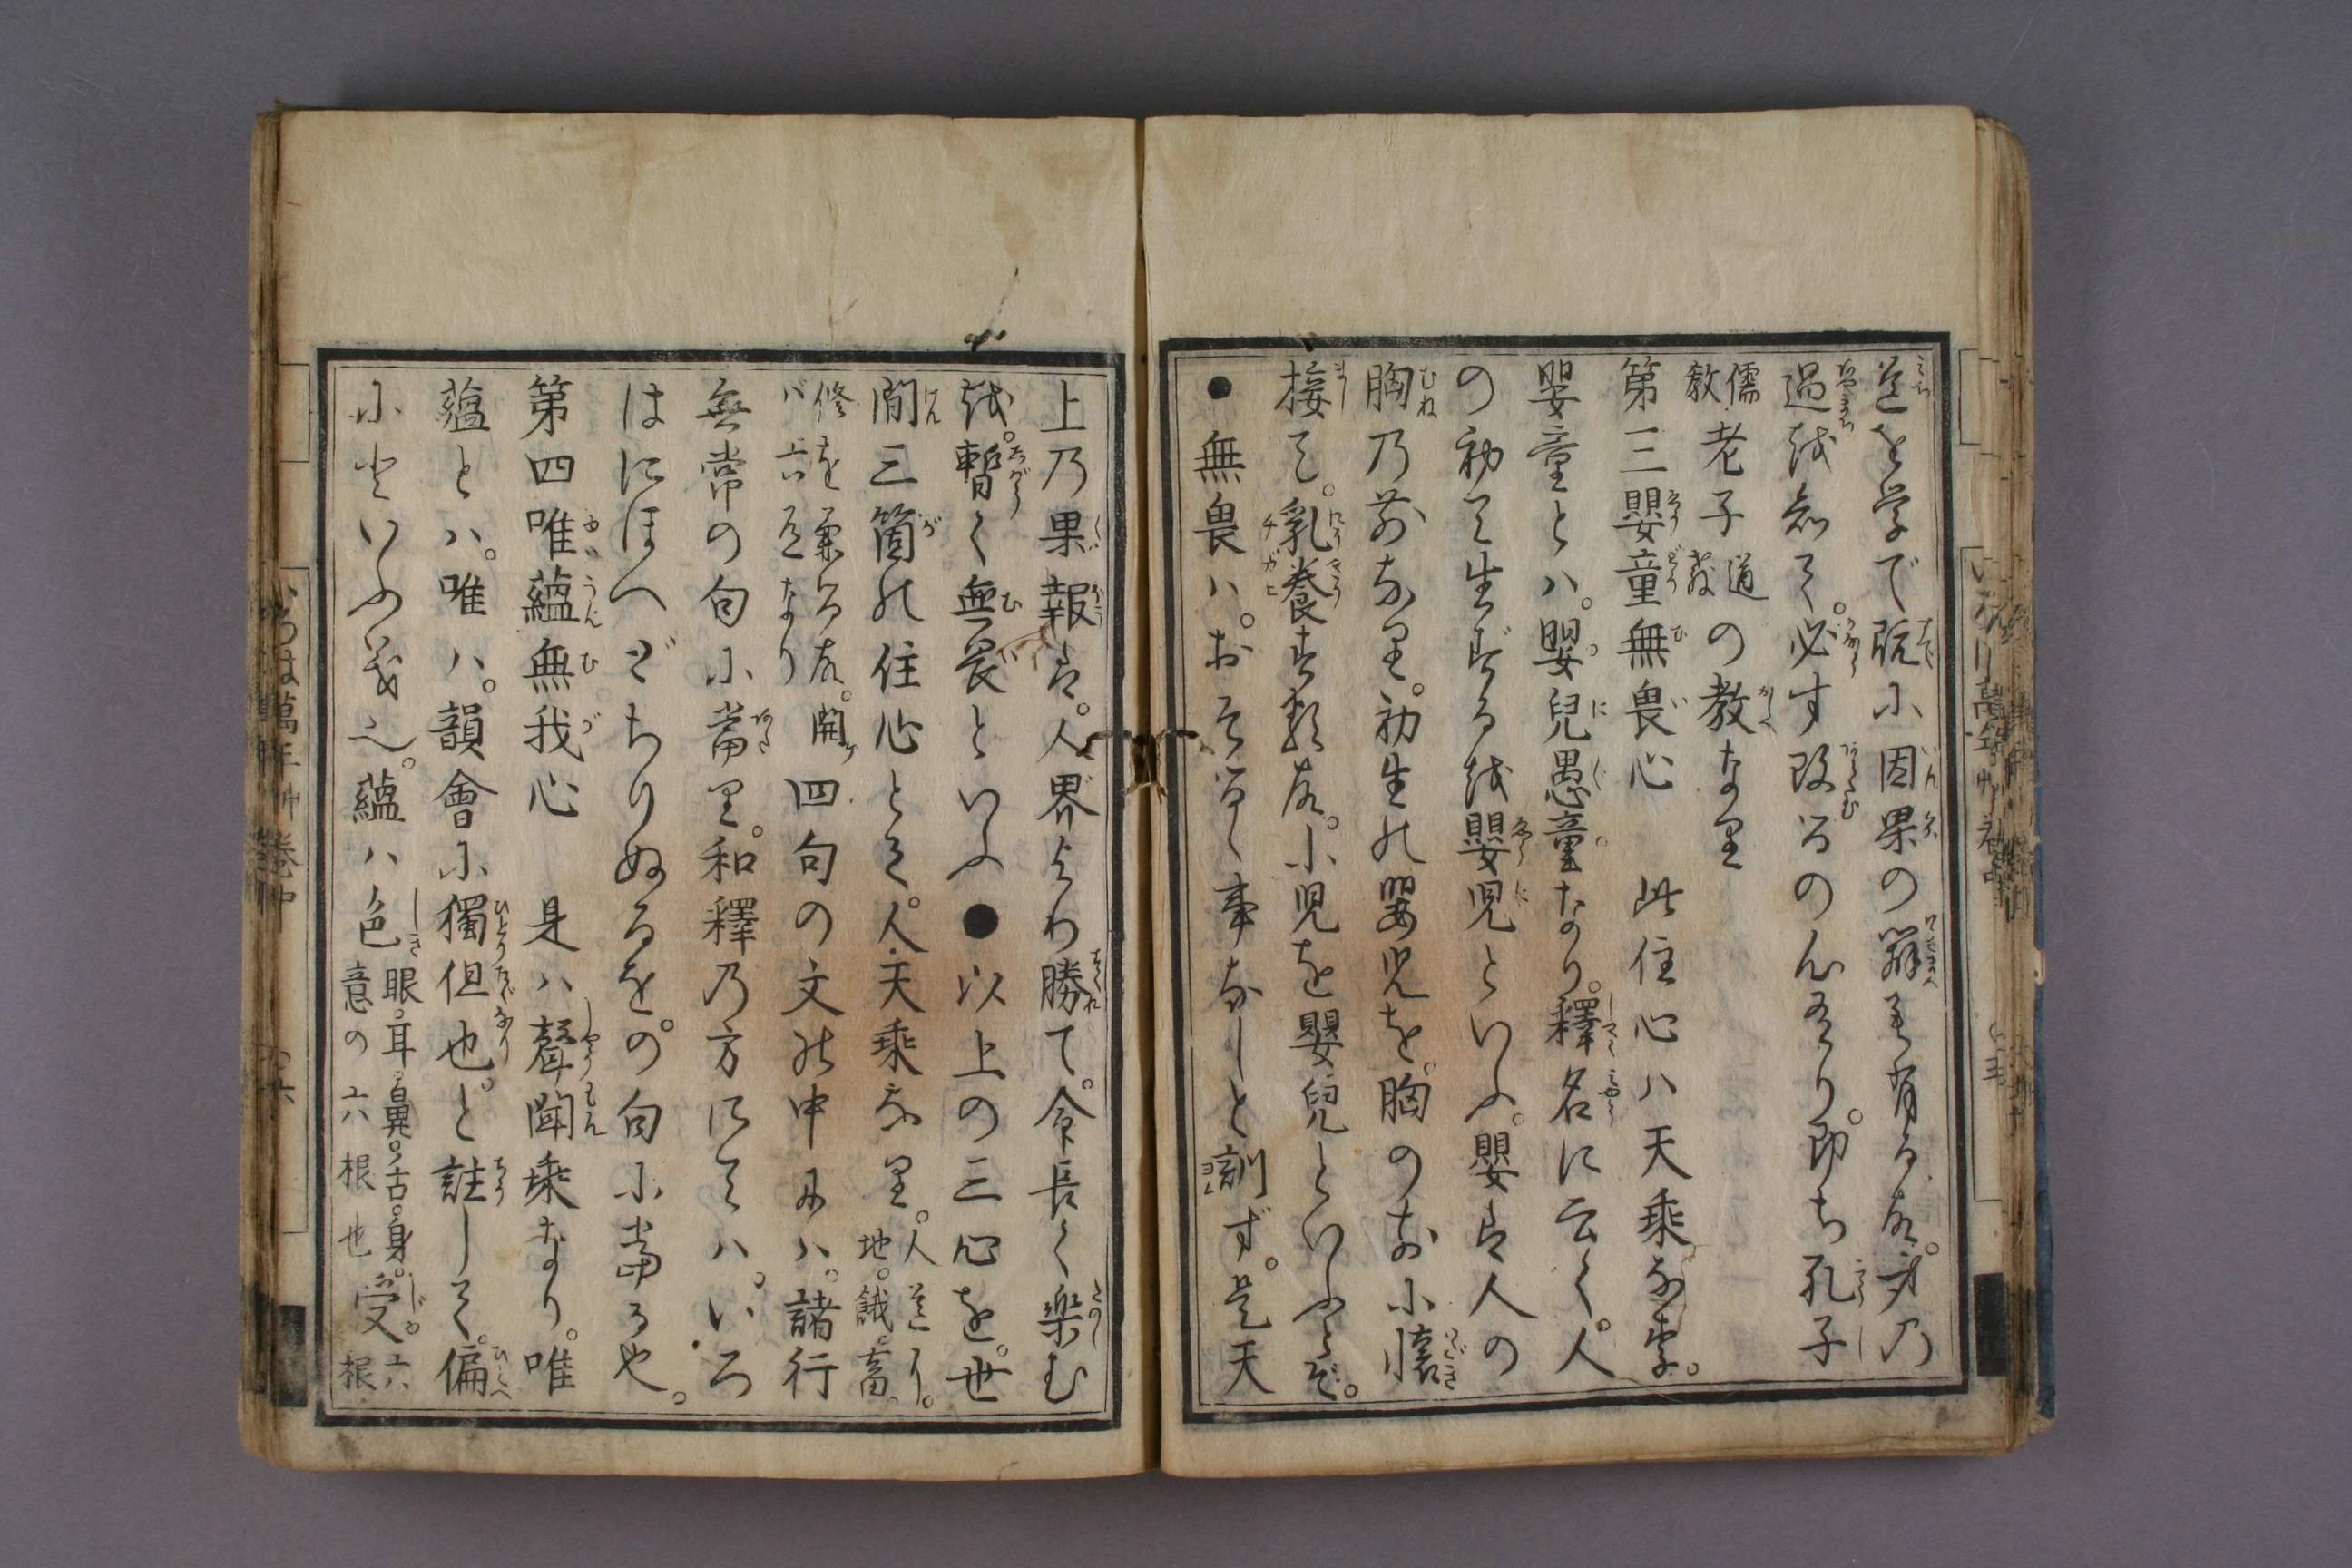 道を学で既に因果の辨も有る故。身乃
過越知て。必す改るの心有り。即ち孔子
儒教老子道教の教なり
第三嬰童無畏心　此住心ハ天乗なり。
嬰童とハ。嬰兒愚童なり。釋名に云く。人
の初て生ずる越嬰児といふ。嬰は人の
胸乃前なり。初生の嬰児を。胸の前に懐
接て。乳養する故。小児を嬰兒といふぞ。
●無畏ハ。おそるゝ事なしと訓ず。是天
上乃果報は。人界より勝て。命長く楽む
越。暫く無畏といふ●以上の三心を。世
間三箇の住心とす。人天乗なり。人道ハ。地。餓。畜。
修を兼る故。開けバ六道なり　四句の文の中にハ。諸行
無常の句に當り。和釋乃方にてハ。いろ
はにほへどちりぬるを。の句に當るや。
第四唯蘊無我心　是ハ聲聞乗なり。唯
蘊とハ。唯ハ。韻會に獨但也。と註して。偏
にといふ義也。蘊ハ色眼。耳。鼻。舌。身。意の六根也受六根